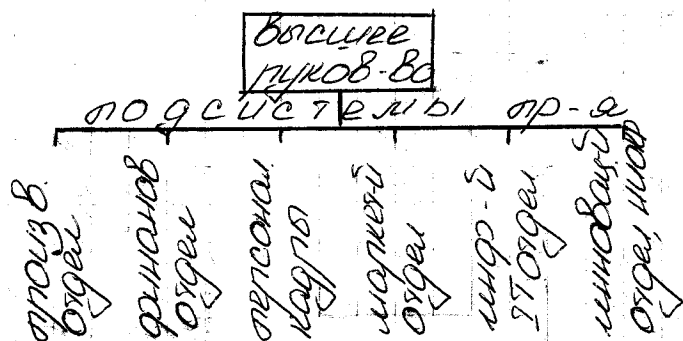 высшее
руков-во
подсистемы пр-я
произв.
отдел
финансов
отдел
персонал
кадры
маркет-й
отдел
инфр-й
IT отдел
инноваций
отдел, ниокр